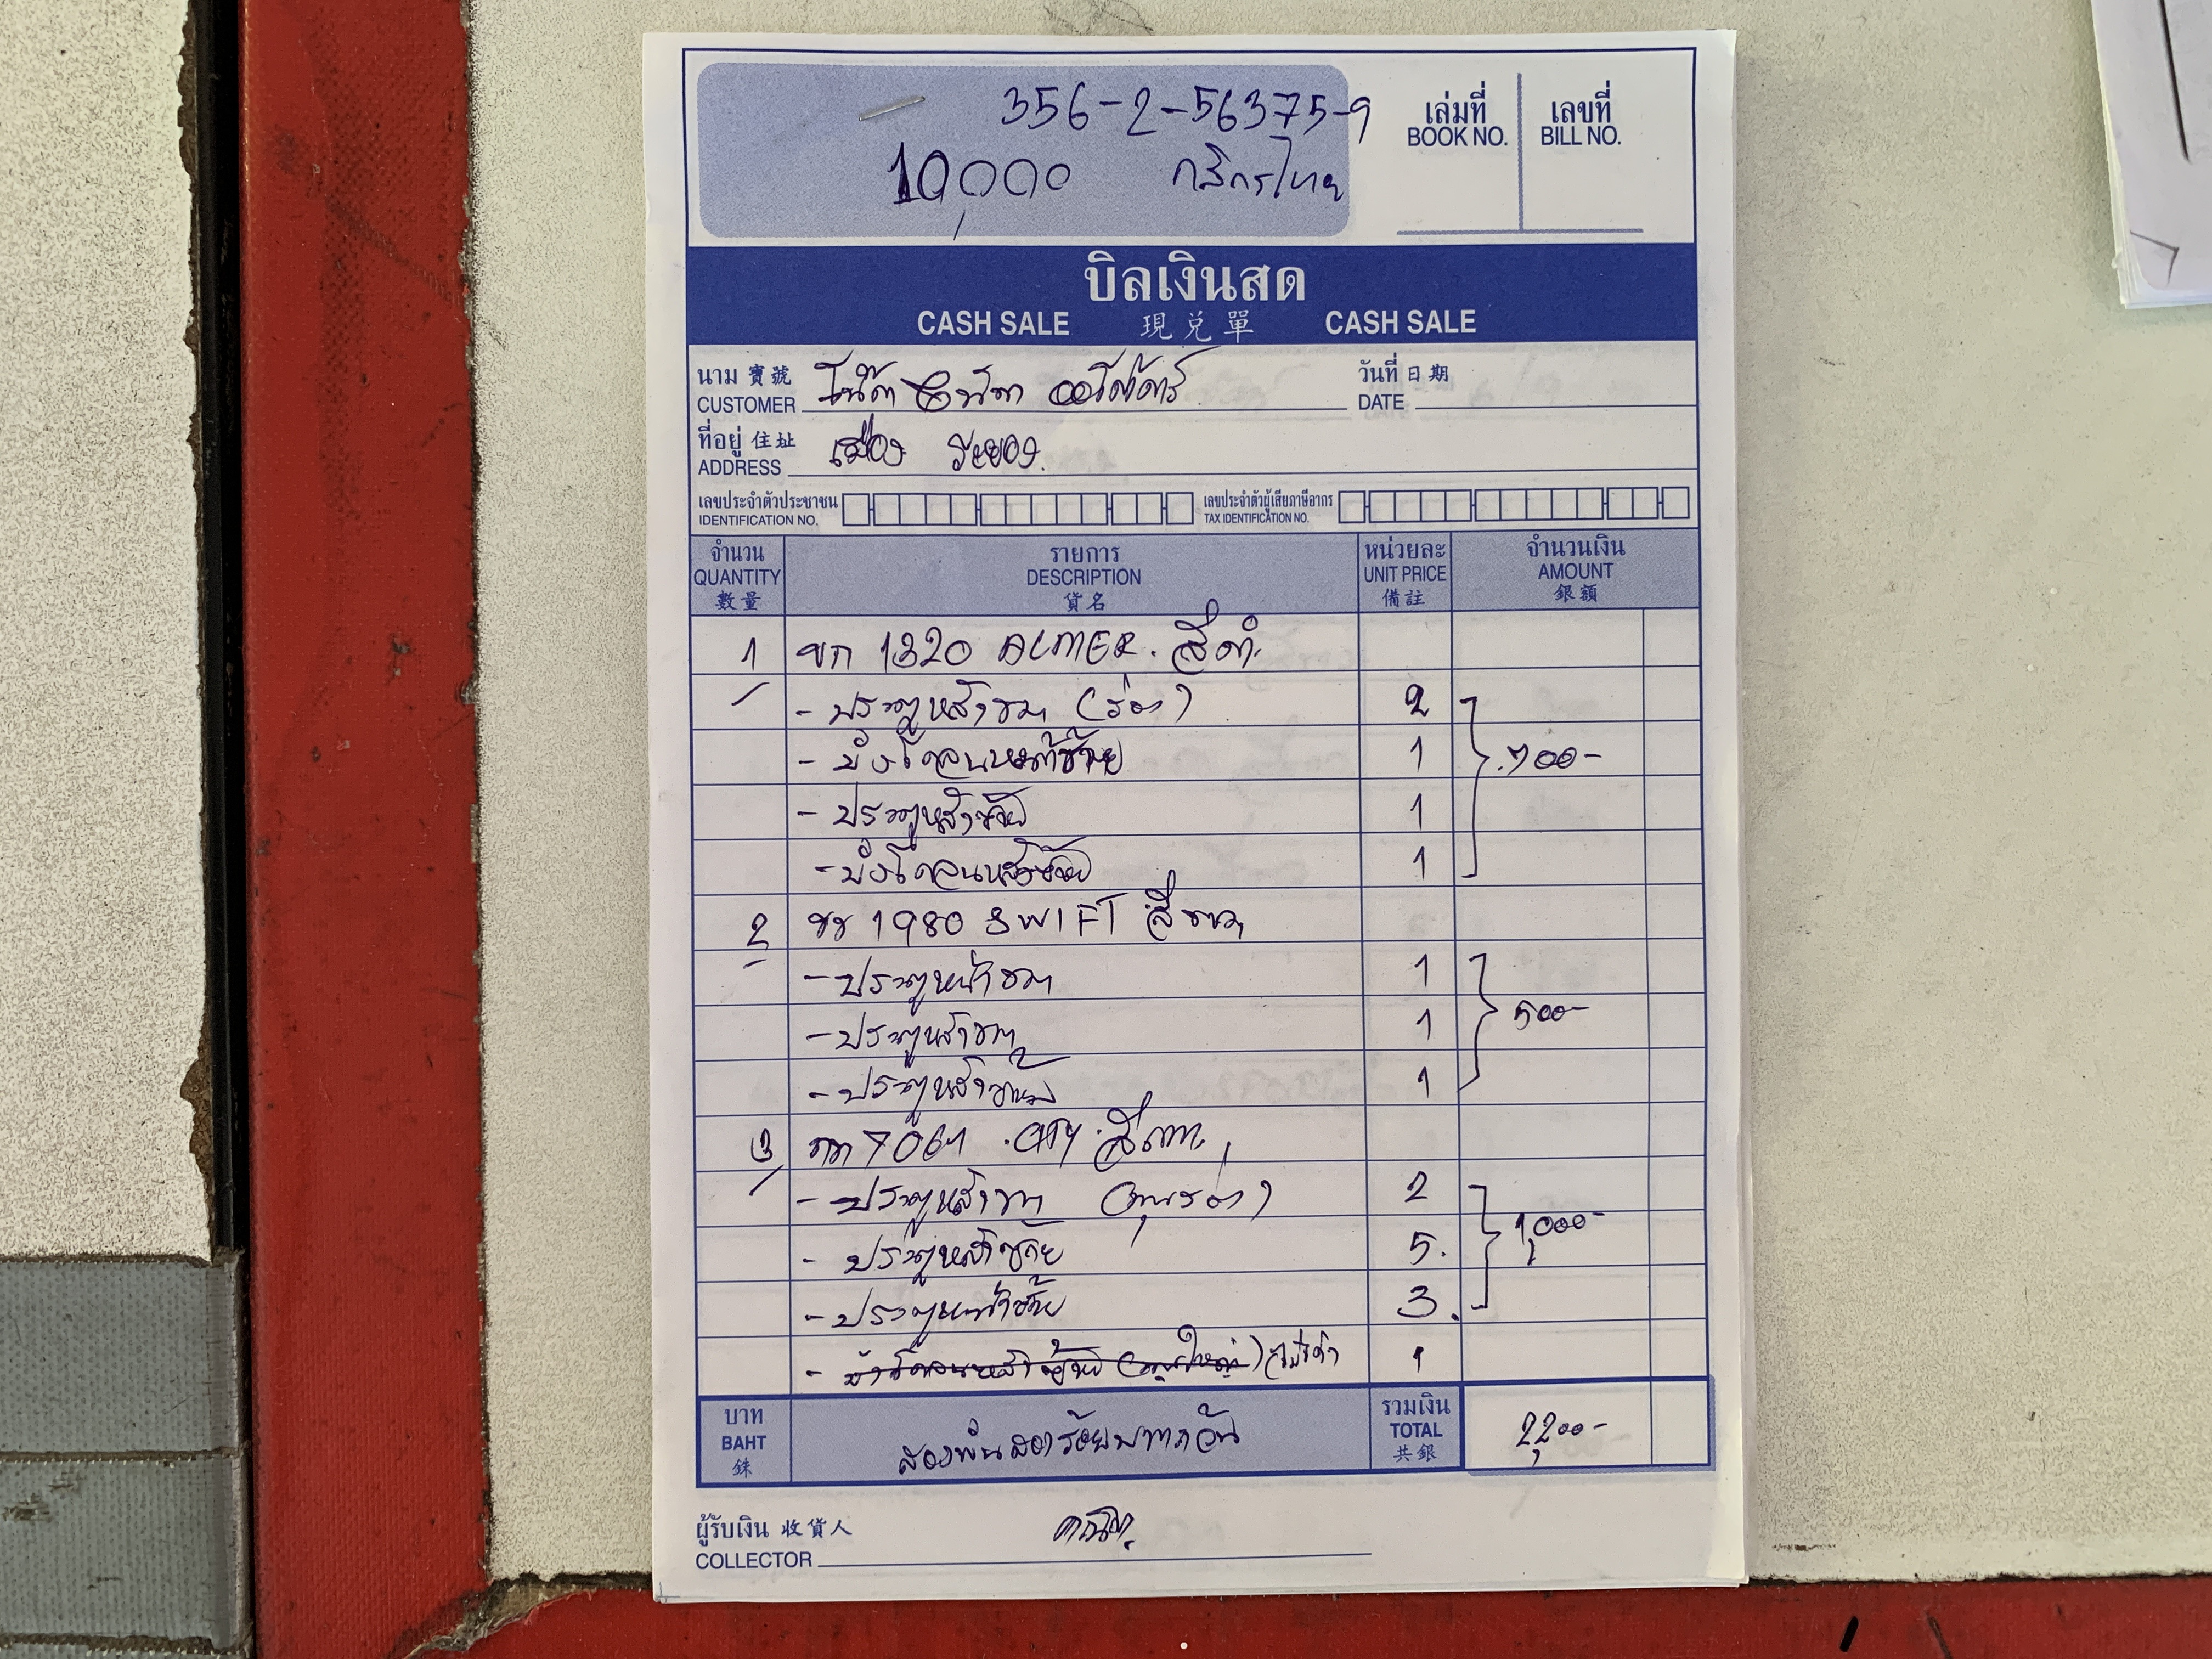 356-2-56375-9
10,000 กสิกรไทย
เล่มที่ เลขที่
BOOK NO. BILL NO.
บิลเงินสด
CASH SALE 現兌單 CASH SALE
นาม 寶號 วันที่ 日期
CUSTOMER DATE
ที่อยู่ 住址 เมือง ระยอง.
ADDRESS
เลขประจำตัวประชาชน เลขประจำตัวผู้เสียภาษีอากร
IDENTIFICATION NO. TAX IDENTIFICATION NO.
จำนวน รายการ หน่วยละ จำนวนเงิน
QUANTITY DESCRIPTION UNIT PRICE AMOUNT
數量 貨名 備註 銀額
1 ขก 1320 ALMER. สีดำ
- ประตูหลังขวา (ร่อง) 2
- บังโคลนหน้าซ้าย 1 700-
- ประตูหลังซ้าย 1
- บังโคลนหลังซ้าย 1
2 ขช 1980 SWIFT สีขาว
- ประตูหน้าขวา 1
- ประตูหลังขวา 1 500-
- ประตูหลังซ้าย 1
3 7061 CITY สีเทา
- ประตูหลังขวา 2
- ประตูหลังซ้าย 5. 1,000-
- ประตูหน้าซ้าย 3.
- บังโคลนหลังซ้าย ไม่ได้ทำ 1
บาท รวมเงิน
BAHT สองพันสองร้อยบาทถ้วน TOTAL 2,200-
銖 共銀
ผู้รับเงิน 收貨人
COLLECTOR